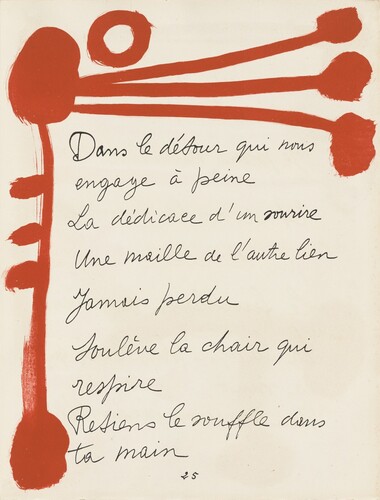 Dans le détour qui nous
engage à peine
La dédicace d'un sourire
Une maille de l'autre lien
Jamais perdu
Soulève la chair qui
respire
Retiens le souffle dans
ta main
25